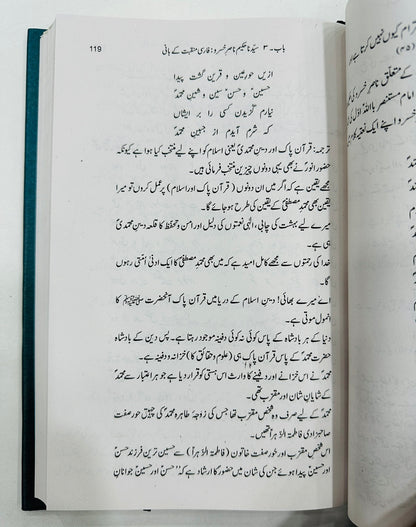 باب۔ ۳ سیّدنا حکیم ناصر خسرو: فارسی منقبت کے بانی 119
ازیں حورِ عین و قرین گشت پیدا
حسینؑ و حسنؑ سین و شینِ محمدؐ
نیارم گزیدن کسی را بر ایشاں
کہ شرم آیدم از جبینِ محمدؐ
ترجمہ: قرآنِ پاک اور دینِ محمدیؐ یعنی اسلام کو اپنے لیے منتخب کیا ہوا ہے کیونکہ
حضورِ انورؐ نے بھی یہی دونوں چیزیں منتخب فرمائی تھیں۔
مجھے یقین ہے کہ اگر میں ان دونوں (قرآنِ پاک اور اسلام) پر عمل کروں تو میرا
یقین بھی محمدِ مصطفیٰؐ کے یقین کی طرح ہو جائے گا۔
میرے لیے بہشت کی چابی، الٰہی نعمتوں کی دلیل اور امن و تحفظ کا قلعہ دینِ محمدیؐ
ہی ہے۔
خدا کی رحمتوں سے مجھے کامل امید ہے کہ میں بھی محمدِ مصطفیٰؐ کا ایک ادنیٰ اُمتی رہوں
گا۔
اے میرے بھائی! دینِ اسلام کے دریا میں قرآنِ پاک آنحضرت ﷺ کا
انمول موتی ہے۔
دنیا کے ہر بادشاہ کے پاس کوئی نہ کوئی دفینہ موجود رہتا ہے۔ پس دین کے بادشاہ
حضرت محمدؐ کے پاس قرآنِ پاک ہی (علوم و حقائق کا) خزانہ و دفینہ ہے۔
محمدؐ نے اس خزانے اور دفینے کا وارث اس ہستی کو قرار دیا ہے جو ہر اعتبار سے محمدؐ
کے شایانِ شان اور مقرب تھی۔
محمدؐ کے لیے صرف وہ شخص مقرب تھا جس کی زوجۂ طاہرہ محمدؐ کی چہیتی حور صفت
صاحبزادی فاطمۃ الزہراؑ تھیں۔
اس شخصِ مقرب اور حور صفت خاتون (فاطمۃ الزہراؑ) سے حسین ترین فرزند حسنؑ
اور حسینؑ پیدا ہوئے جن کی شان میں حضورؐ کا ارشاد ہے کہ "حسنؑ اور حسینؑ جوانانِ
(۴۵)
کے متعلق ناصر خسرو کی
امام مستنصر باللہ اوّل کی
خسرو اپنے ایک